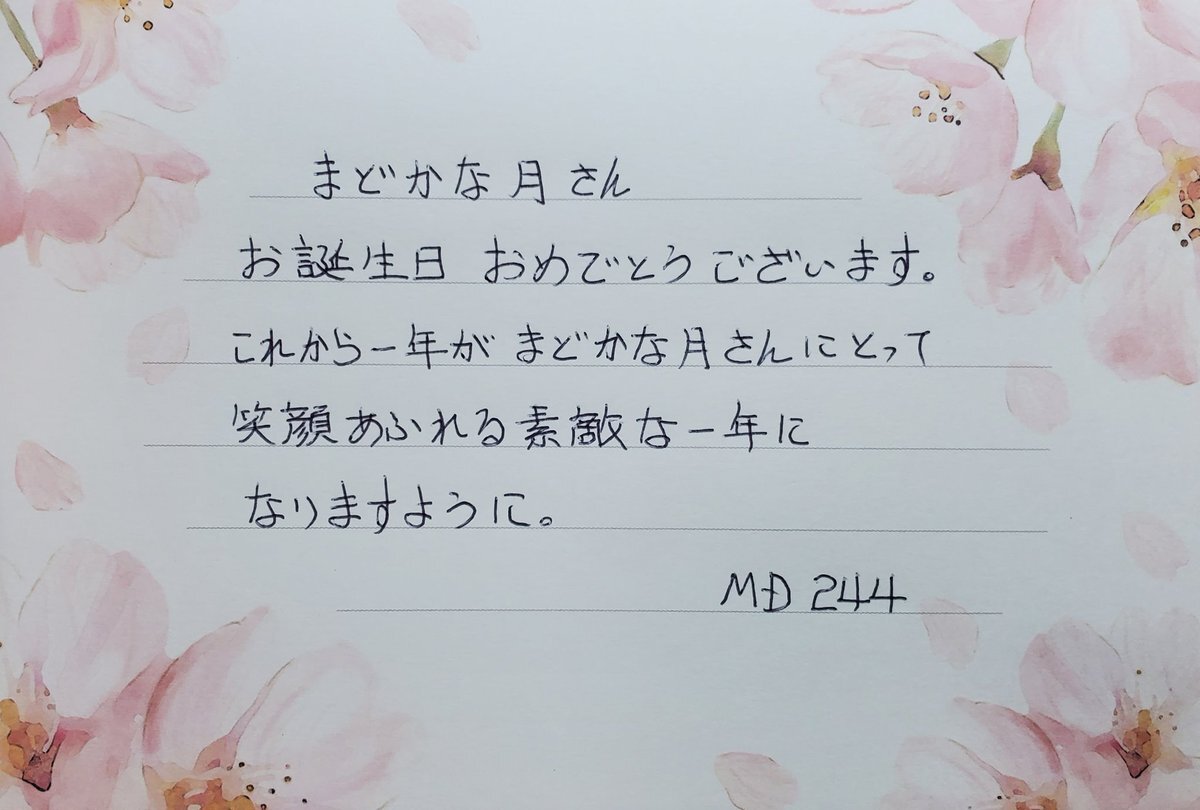 まどかな月さん
お誕生日 おめでとうございます。
これから一年が まどかな月さんにとって
笑顔あふれる素敵な一年に
なりますように。
MD 244